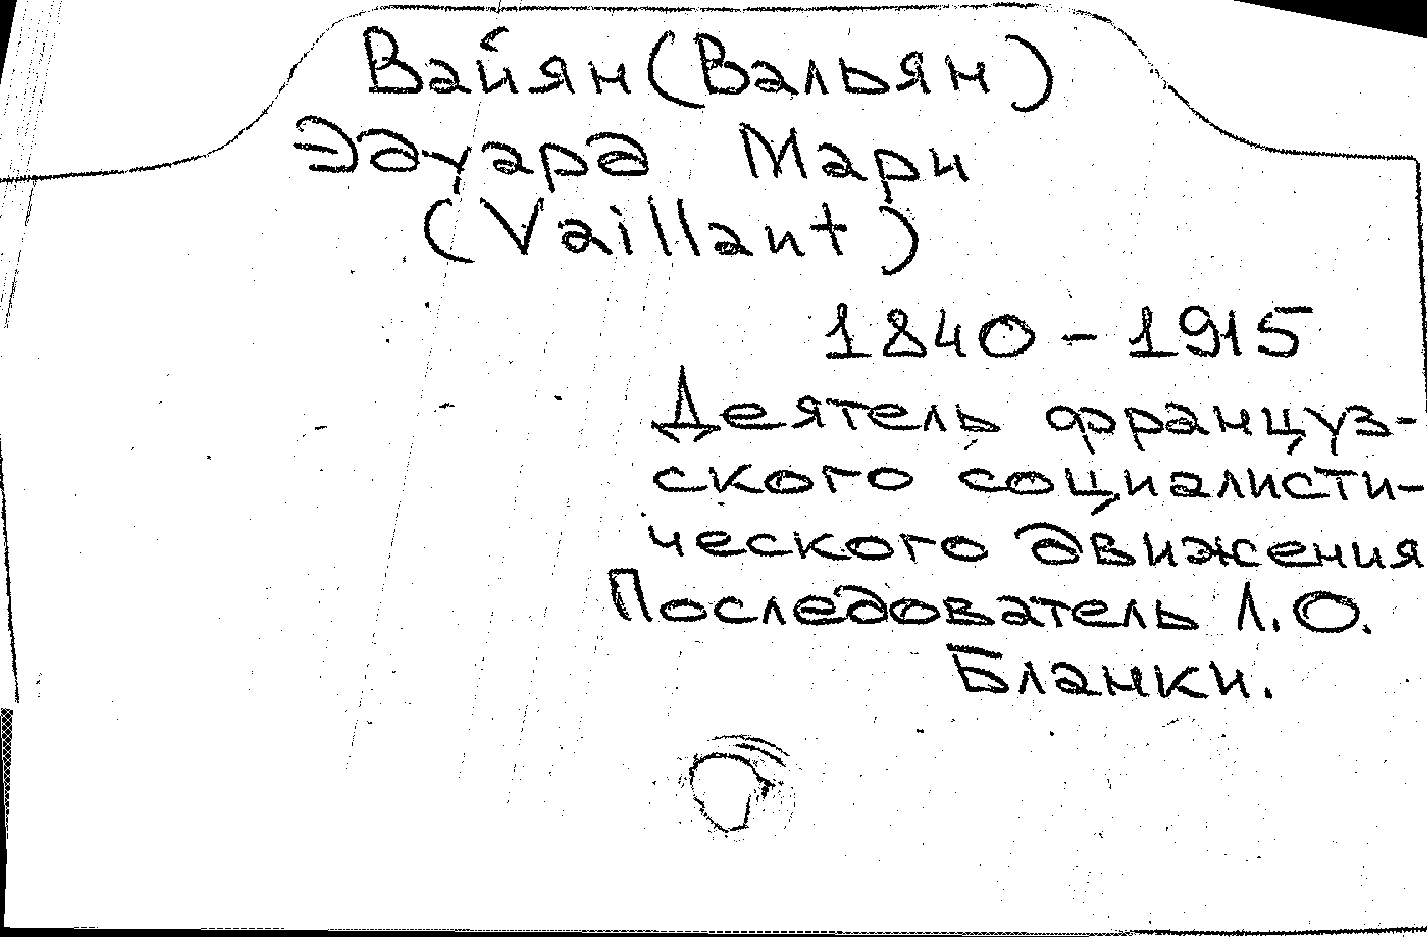 Вайян (Вальян)
Эдуард Мари
(Vaillant)
1840 - 1915
Деятель француз-
ского социалисти-
ческого движения
Последователь Л.О.
Бланки.